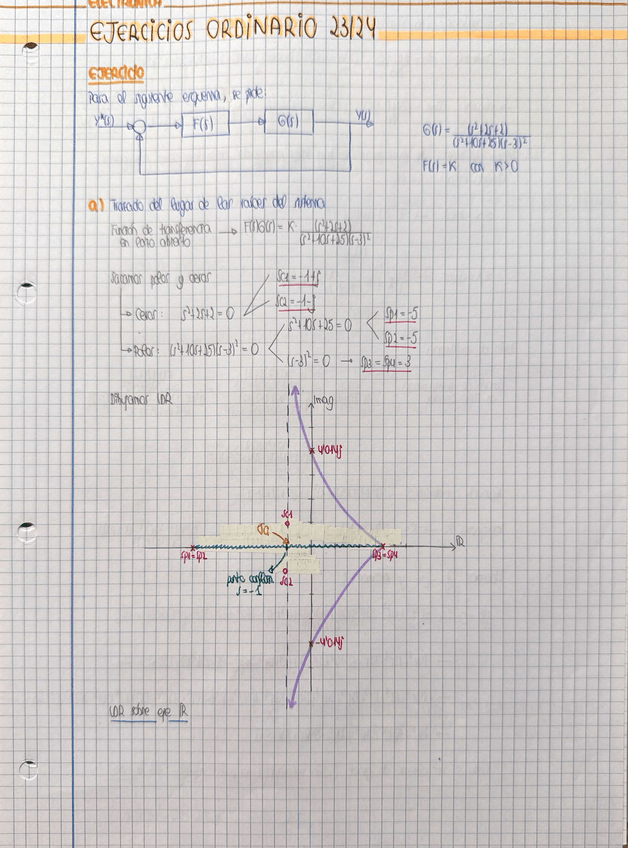 ELECTRÓNICA
EJERCICIOS ORDINARIO 23/24
EJERCICIO
Para el siguiente esquema, se pide:
Y*(s) F(s) G(s) Y(s)
G(s) = (s²+2s+2) / (s²+10s+25)(s-3)²
F(s) = K con K>0
a) Trazado del lugar de las raíces del sistema
Función de transferencia en lazo abierto → F(s)G(s) = K · (s²+2s+2) / (s²+10s+25)(s-3)²
Sacamos polos y ceros
sc1 = -1+j
→ Ceros: s²+2s+2 = 0
sc2 = -1-j
s²+10s+25 = 0
sp1 = -5
sp2 = -5
→ Polos: (s²+10s+25)(s-3)² = 0
(s-3)² = 0 → sp3 = sp4 = 3
Dibujamos LDR
Imag
4'04j
sc1
σa
IR
sp1=sp2
sp3=sp4
punto confluen
sc2
s=-1
-4'04j
LDR sobre eje IR